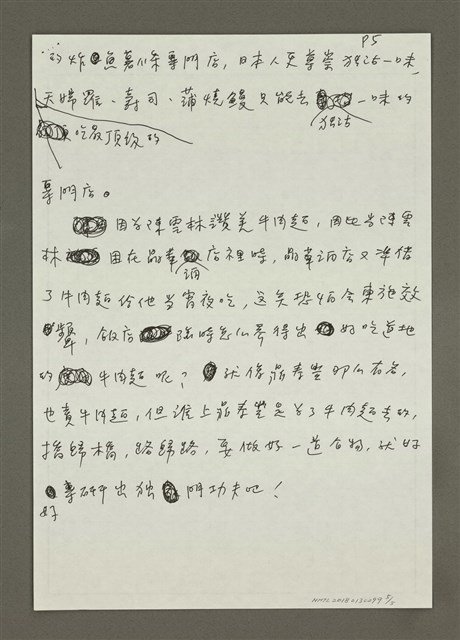 P5
的炸魚薯條專門店，日本人更尊崇獨沽一味，
天婦羅、壽司、蒲燒鰻只能去獨沽一味的
吃最頂級的
專門店。
因為陳雲林讚美牛肉麵，因此當陳雲
林困在晶華酒店裡時，晶華酒店又準備
了牛肉麵給他當宵夜吃，這矣恐怕會東施效
顰，飯店臨時怎么弄得出好吃道地
的牛肉麵呢？就像鼎泰豐那么有名，
也賣牛肉麵，但誰上鼎泰豐是為了牛肉麵去的，
橋歸橋，路歸路，要做好一道食物，就好
好專研出獨門功夫吧！
NMTL20180130099 5/5